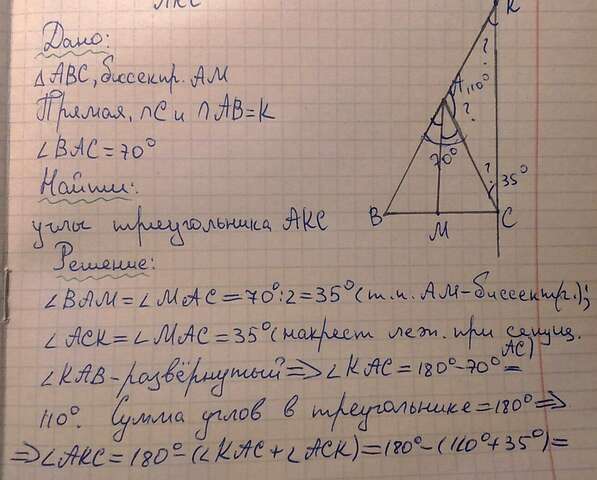 АКС
Дано:
△ABC, биссектр. AM
Прямая, ∩ C и ∩ AB = K
∠BAC = 70°
Найти:
углы треугольника AKC
Решение:
K
?
A
110°
?
70°
?
35°
B
M
C
∠BAM = ∠MAC = 70°:2 = 35° (т.к. AM-биссектр.);
∠ACK = ∠MAC = 35° (накрест леж. при секущ. AC)
∠KAB-развёрнутый => ∠KAC = 180°-70° =
110°. Сумма углов в треугольнике = 180° =>
=> ∠AKC = 180° - (∠KAC + ∠ACK) = 180° - (110° + 35°) =